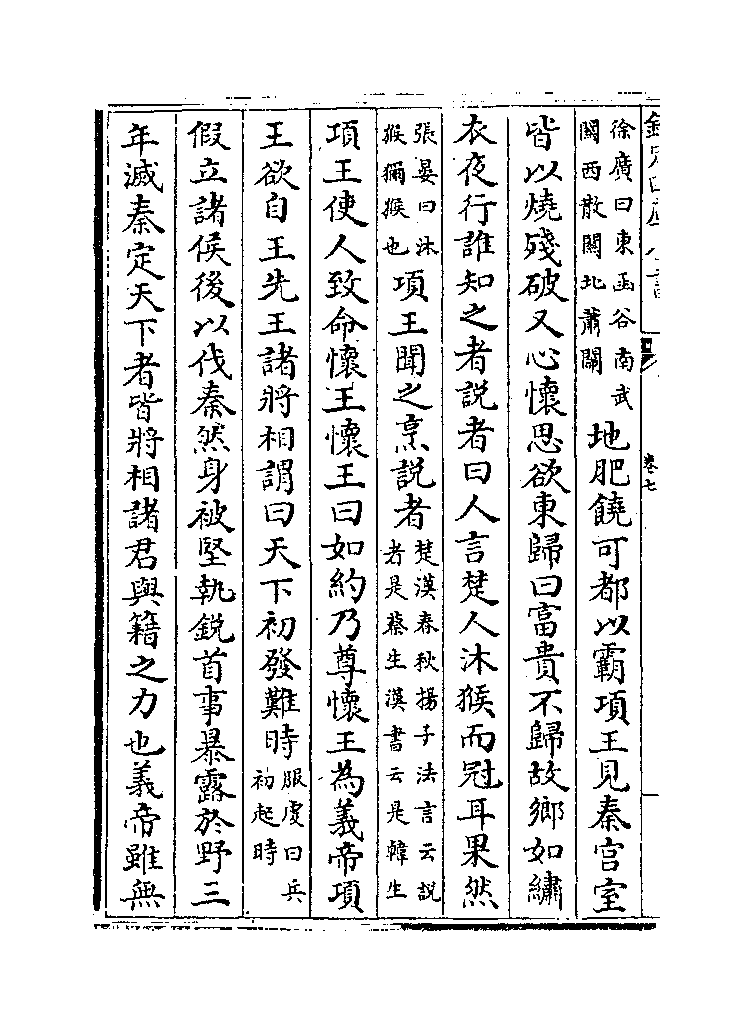 欽定四庫全書
卷七
徐廣曰東函谷南武
關西散關北蕭關
地肥饒可都以霸項王見秦宫室
皆以燒殘破又心懷思欲東歸曰富貴不歸故鄉如繡
衣夜行誰知之者説者曰人言楚人沐猴而冠耳果然
張晏曰沐
猴獮猴也
項王聞之烹説者
楚漢春秋揚子法言云説
者是蔡生漢書云是韓生
項王使人致命懷王懷王曰如約乃尊懷王為義帝項
王欲自王先王諸將相謂曰天下初發難時
服虔曰兵
初起時
假立諸侯後以伐秦然身被堅執鋭首事暴露於野三
年滅秦定天下者皆將相諸君與籍之力也義帝雖無